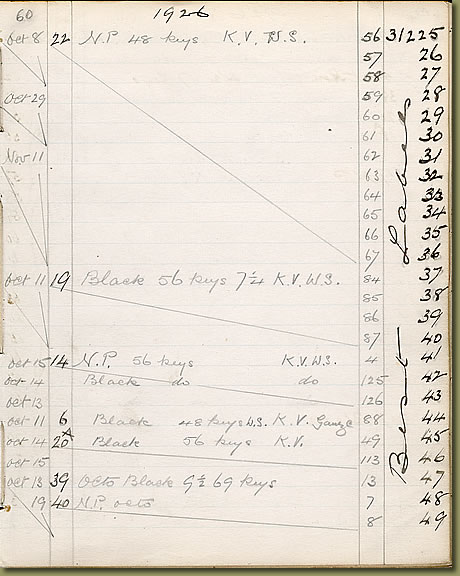 60 1926
Oct 8 22 N.P. 48 keys K.V. W.S. 56 31225
57 26
58 27
Oct 29 59 28
60 29
61 30
Nov 11 62 31
63 32
64 33
65 34
66 35
67 36
Oct 11 19 Black 56 keys 7¼ K.V.W.S. 84 37
85 38
86 39
87 40
Oct 15 14 N.P. 56 keys K.V.W.S. 4 41
Oct 14 Black do do 125 42
Oct 13 126 43
Oct 11 6 Black 48 keys W.S. K.V. Gauze 88 44
Oct 14 20A Black 56 keys K.V. 49 45
Oct 15 113 46
Oct 13 39 Octo Black 9½ 69 keys 13 47
19 40 N.P. octo 7 48
8 49
Best Labels